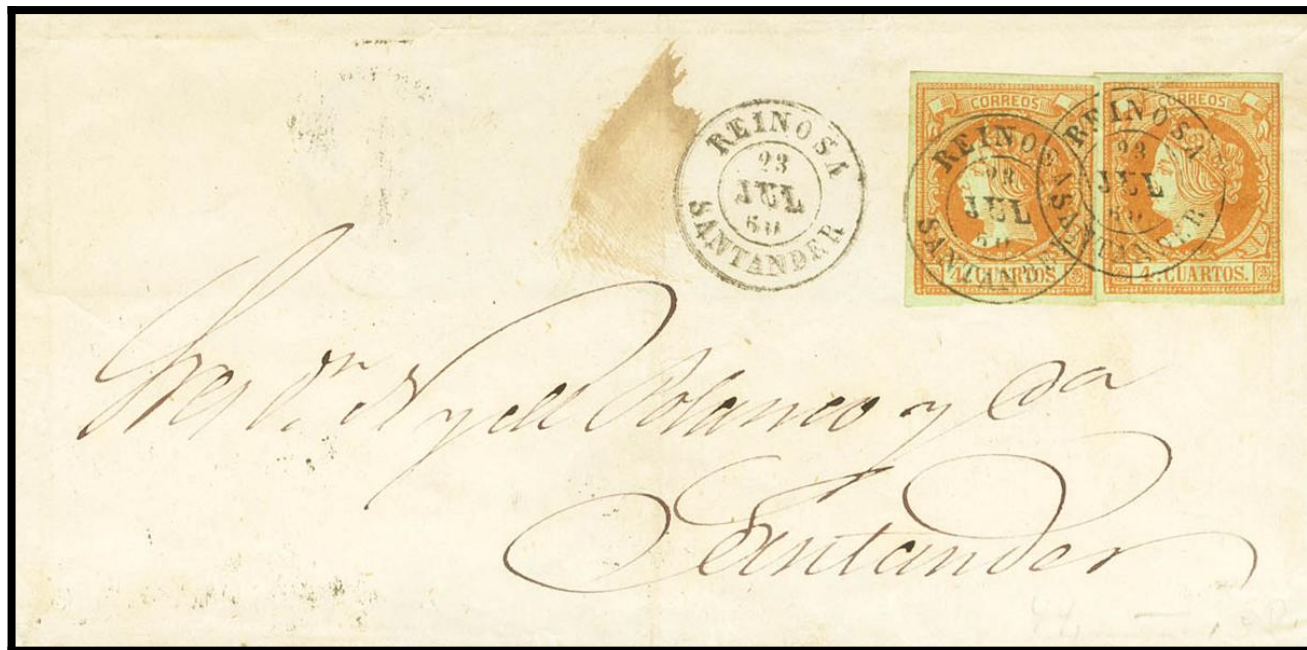 REINOSA
23
JUL
60
SANTANDER
CORREOS
REINOSA
23
JUL
60
SANTANDER
4 CUARTOS.
CORREOS
REINOSA
23
JUL
60
SANTANDER
4 CUARTOS.
Sres Dn y de Polanco y Ca
Santander